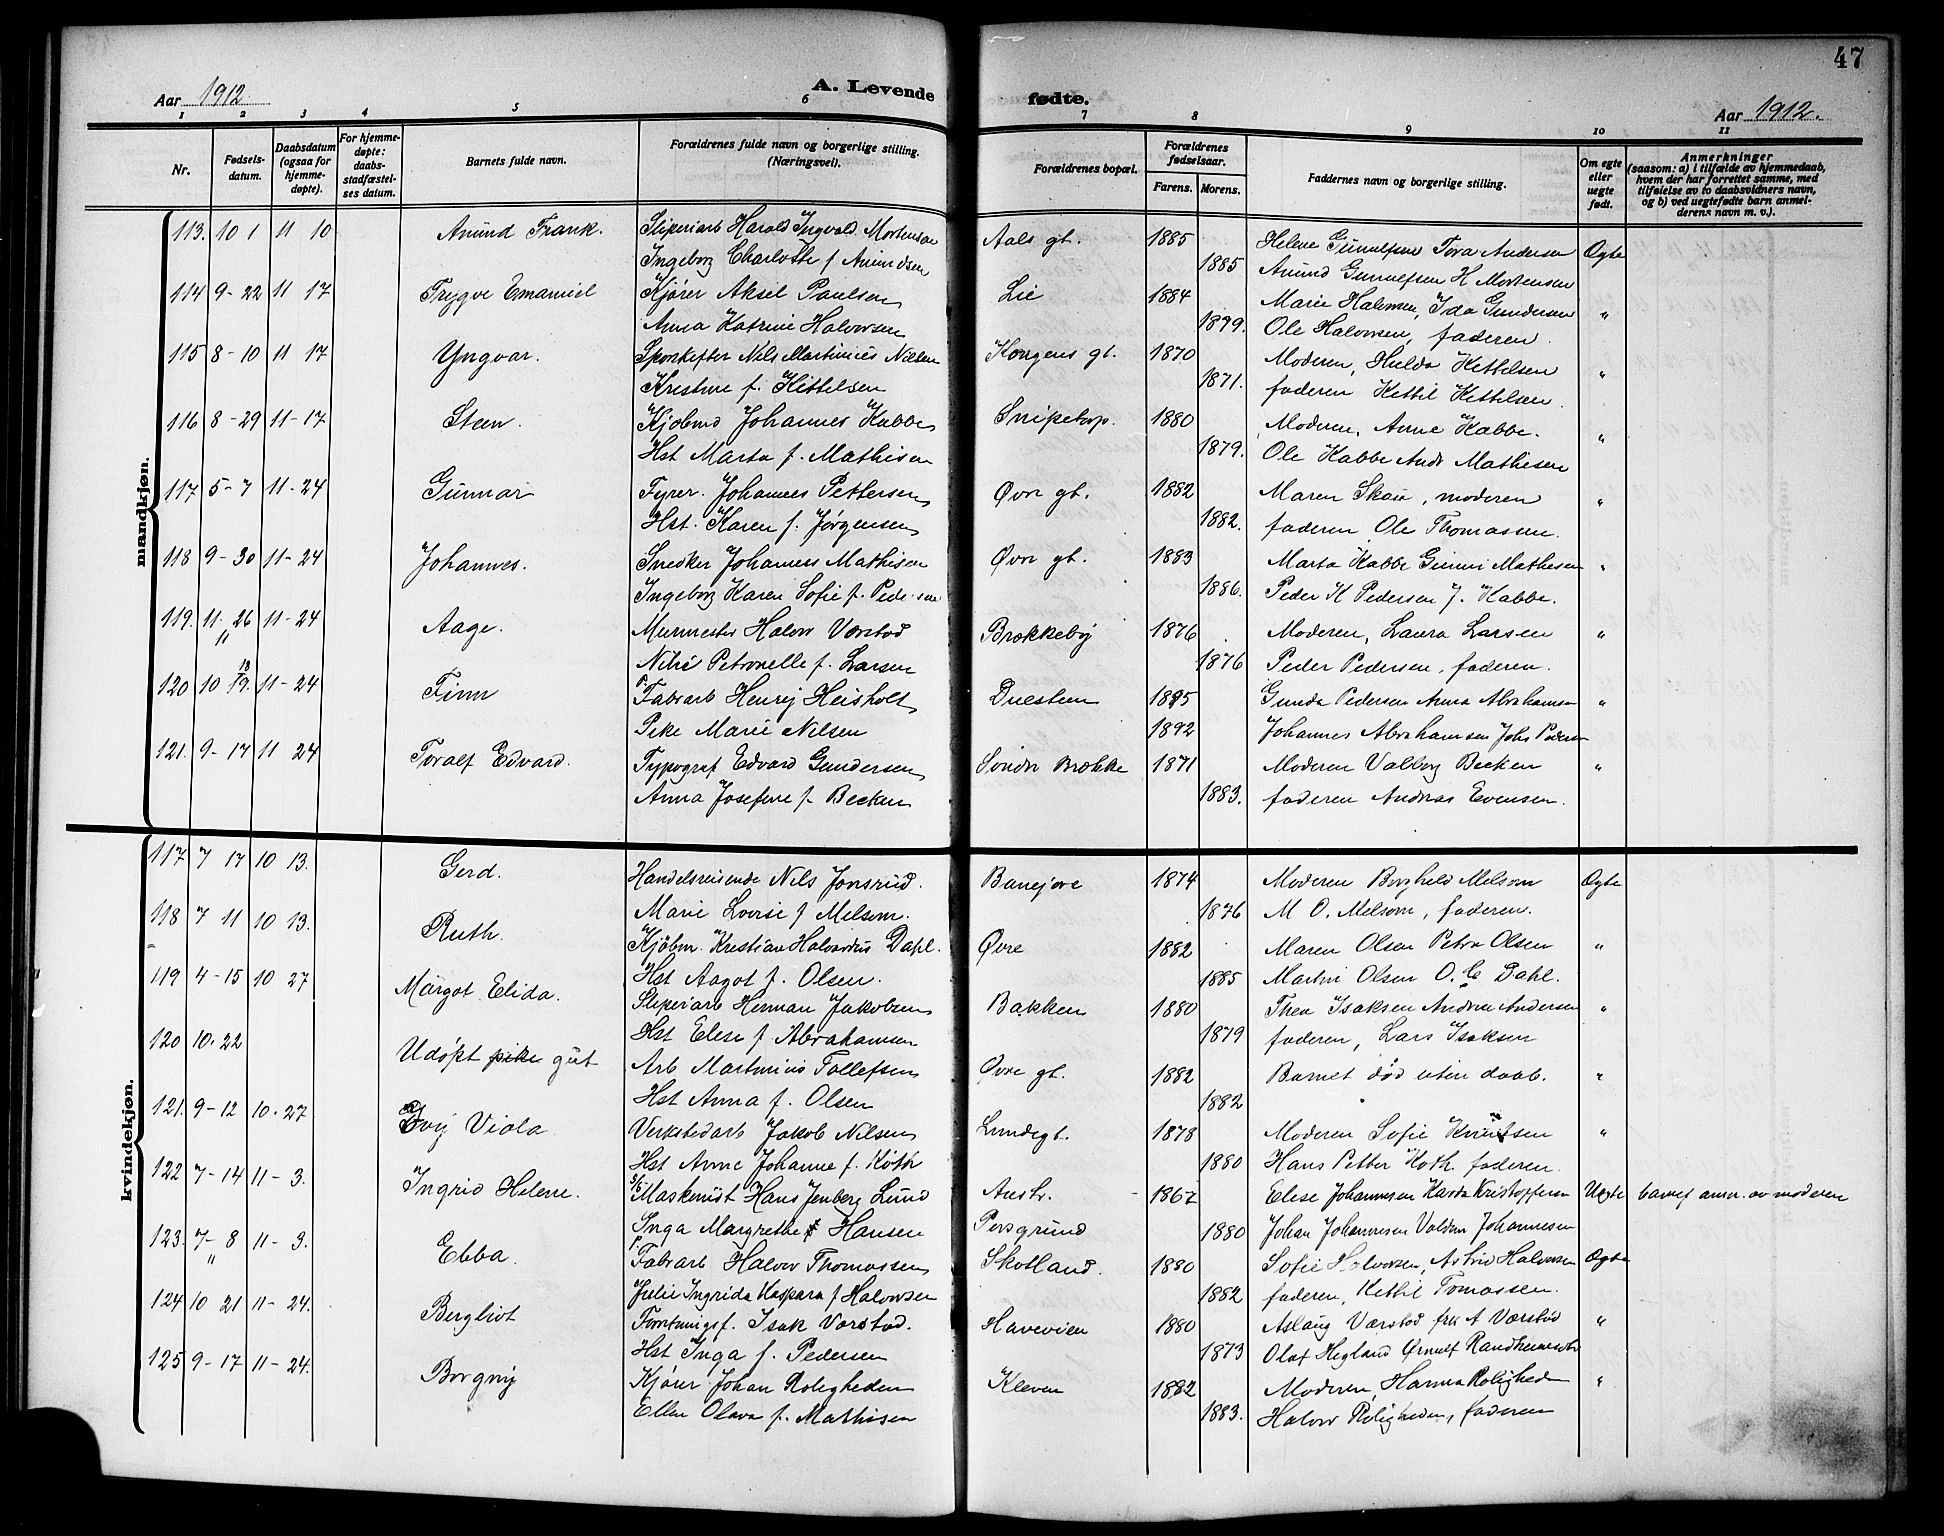 47
Aar 1912.
A. Levende
fødte.
Aar 1912.
1 2 3 4 5 6 7 8 9 10 11
Nr.
Fødsels-
datum.
Daabsdatum
(ogsaa for
hjemme-
døpte).
For hjemme-
døpte:
daabs-
stadfæstel-
ses datum.
Barnets fulde navn.
Forældrenes fulde navn og borgerlige stilling.
(Næringsvei).
Forældrenes bopæl.
Forældrenes
fødselsaar.
Farens. Morens.
Faddernes navn og borgerlige stilling.
Om egte
eller
uegte
født.
Anmerkninger
(saasom: a) i tilfælde av hjemmedaab,
hvem der har forrettet samme, med
tilføielse av to daabsvidners navn,
og b) ved uegtefødte barn anmel-
derens navn m. v.).
mandkjøn.
113. 10 1 11 10 Amund Frank. Sliperiarb Harald Ingvald Mortensen Aals gt. 1885 Helene Gunulfsen Tora Andersen Ogte
Ingeborg Charlotte f Amundsen 1885 Amund Gunulfsen H Mortensen
114 9-22 11 17 Trygve Emanuel Kjører Aksel Paulsen Lie 1884 Marie Halvorsen, Ida Gundersen "
Anna Katrine Halvorsen 1879. Ole Halvorsen, faderen.
115 8-10 11 17 Yngvar. Nils Martinius Nilsen Kongens gt. 1870 Moderen, Hulda Kettelsen "
Kristine f. Kittelsen 1871. faderen Kettil Kettelsen
116 8-29 11-17 Steen. Kjøbmd Johannes Kabbe Snipetorp. 1880 Moderen, Anne Kabbe. "
Hst Marta f. Mathisen 1879. Ole Kabbe Andr Mathisen
117 5-7 11-24 Gunnar Fyrer. Johannes Pettersen Øvre gt. 1882 Maren Skau, moderen "
Hst. Karen f. Jørgensen 1882. faderen Ole Thomassen.
118 9-30 11-24 Johannes. Snedker Johannes Mathisen Øvre gt. 1883 Marta Kabbe Gunni Mathisen "
Ingeborg Karen Sofie f. Pedersen 1886. Peder K Pedersen J. Kabbe.
119. 11. 26 11-24 Aage. Murmester Halvor Værstad Brekkeby 1876 Moderen, Laura Larsen "
" Petronelle f. Larsen 1876 Peder Pedersen, faderen.
120 10 18/19. 11-24 Finn Fabrarb Henry Heisholt Duesteen 1885 Gunda Pedersen Anna Abrahamsen "
Pike Marie Nilsen 1892 Johannes Abrahamsen Johs Pedersen
121. 9-17 11 24 Toralf Edvard. Typograf Edvard Gundersen Søndre Brække 1871 Moderen Valborg Becken "
Anna Josefine f. Becken 1883. faderen Andreas Evensen.
kvindekjøn.
117 7 17 10 13. Gerd. Handelsreisende Nils Jonsrud. Banejore 1874 Moderen Borghild Melsom Ogte
Marie Lovise f Melsom. 1876 M O. Melsom, faderen.
118 7 11 10 13. Ruth. Kjøbm. Kristian Halvardus Dahl. Øvre 1882 Maren Olsen Petra Olsen "
Hst Aagot f. Olsen. 1885 Martin Olsen O. C. Dahl.
119 4-15 10 27 Margot Elida. Sliperiarb Herman Jakobsen Bakken 1880 Thea Isaksen Andrea Andersen "
Hst Elise f Abrahamsen 1879 faderen, Lars Isaksen
120 10. 22 Udøpt pike gut Arb Martinius Tollefsen Øvre gt. 1882 Barnet død uten daab. "
Hst Anna f. Olsen 1882
121. 9-12 10. 27 Evy Viola Verkstedarb Jakob Nilsen Lundegt. 1878 Moderen Sofie Knutsen "
Hst Anne Johanne f. Koth 1880 Hans Petter Koth, faderen.
122 7-14 11-3. Ingrid Helene. Maskenist Hans Jenberg Lund Austr. 1867 Elise Johannesen Karda Kristoffersen Uegte barnef anm. av moderen
Inga Margrethe Hansen Porsgrund 1880 Johan Johannesen Valdem Johannesen
123. 7-8 11-3. Ebba. Fabrarb Halvor Thomassen Skotland. 1880 Sofie Halvorsen, Astrid Halvorsen Ogte
" Julie Ingrida Kaspara f Halvorsen 1882 faderen, Kettil Tomassen.
124 10 21 11-24. Bergliot Isak Værstad. Haveveien 1880 Aslaug Værstad fru A Værstad "
Hst Inga f. Pedersen 1873 Olaf Hegland
125 9-17 11-24. Borgny Kjører Johan Roligheden Kleven 1882 Moderen, Hanna Roligheden "
Ellen Olava f. Mathisen 1883. Halvor Roligheden, faderen